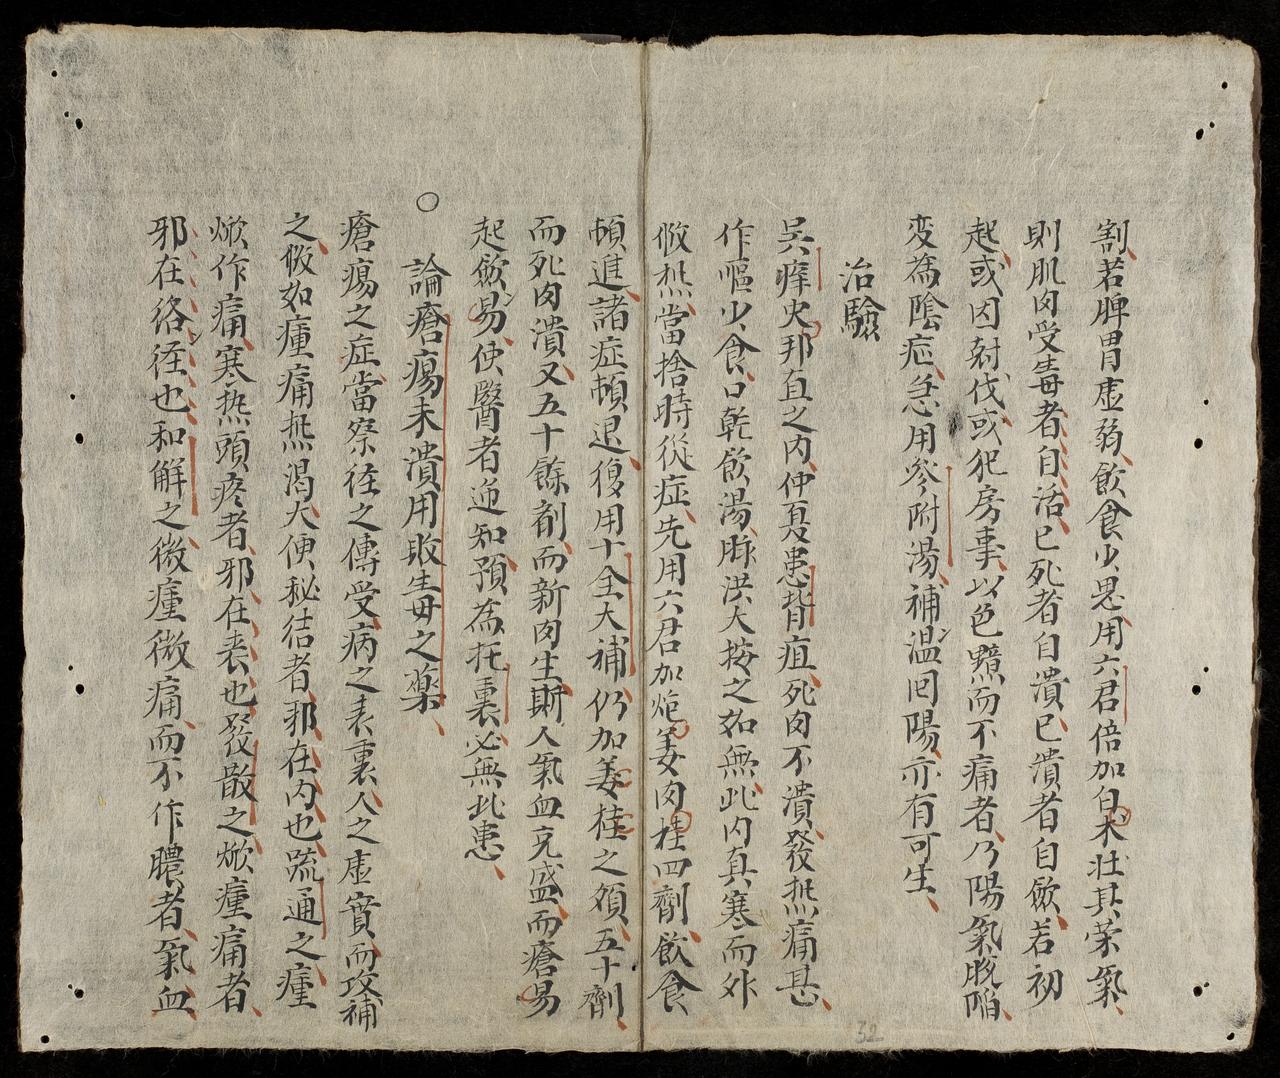 割若脾胃虚弱飲食少思用六君倍加白术壮其荣氣
則肌肉受毒者自活已死者自潰已潰者自斂若初
起或因尅伐或犯房事以色黯而不痛者乃陽氣脱陷
变為陰症急用參附湯補温回陽亦有可生
治驗
吴庠史邦直之内仲夏患背疽死肉不潰發熱痛甚
作嘔少食口乾飲湯脉洪大按之如無此内真寒而外
假热當捨時從症先用六君加炮姜肉桂四劑飲食
頓進諸症頓退復用十全大補仍加姜桂之類五十劑
而死肉潰又五十餘劑而新肉生斯人氣血充盛而瘡易
起斂易使醫者逆知預為托裏必無此患
○
論瘡瘍未潰用敗毒之藥
瘡瘍之症當察徑之傳受病之表裏人之虚實而攻補
之假如瘇痛热渴大便秘结者邪在内也疏通之瘇
焮作痛寒热頭疼者邪在表也發散之焮瘇痛者
邪在络徑也和解之微瘇微痛而不作膿者氣血
32